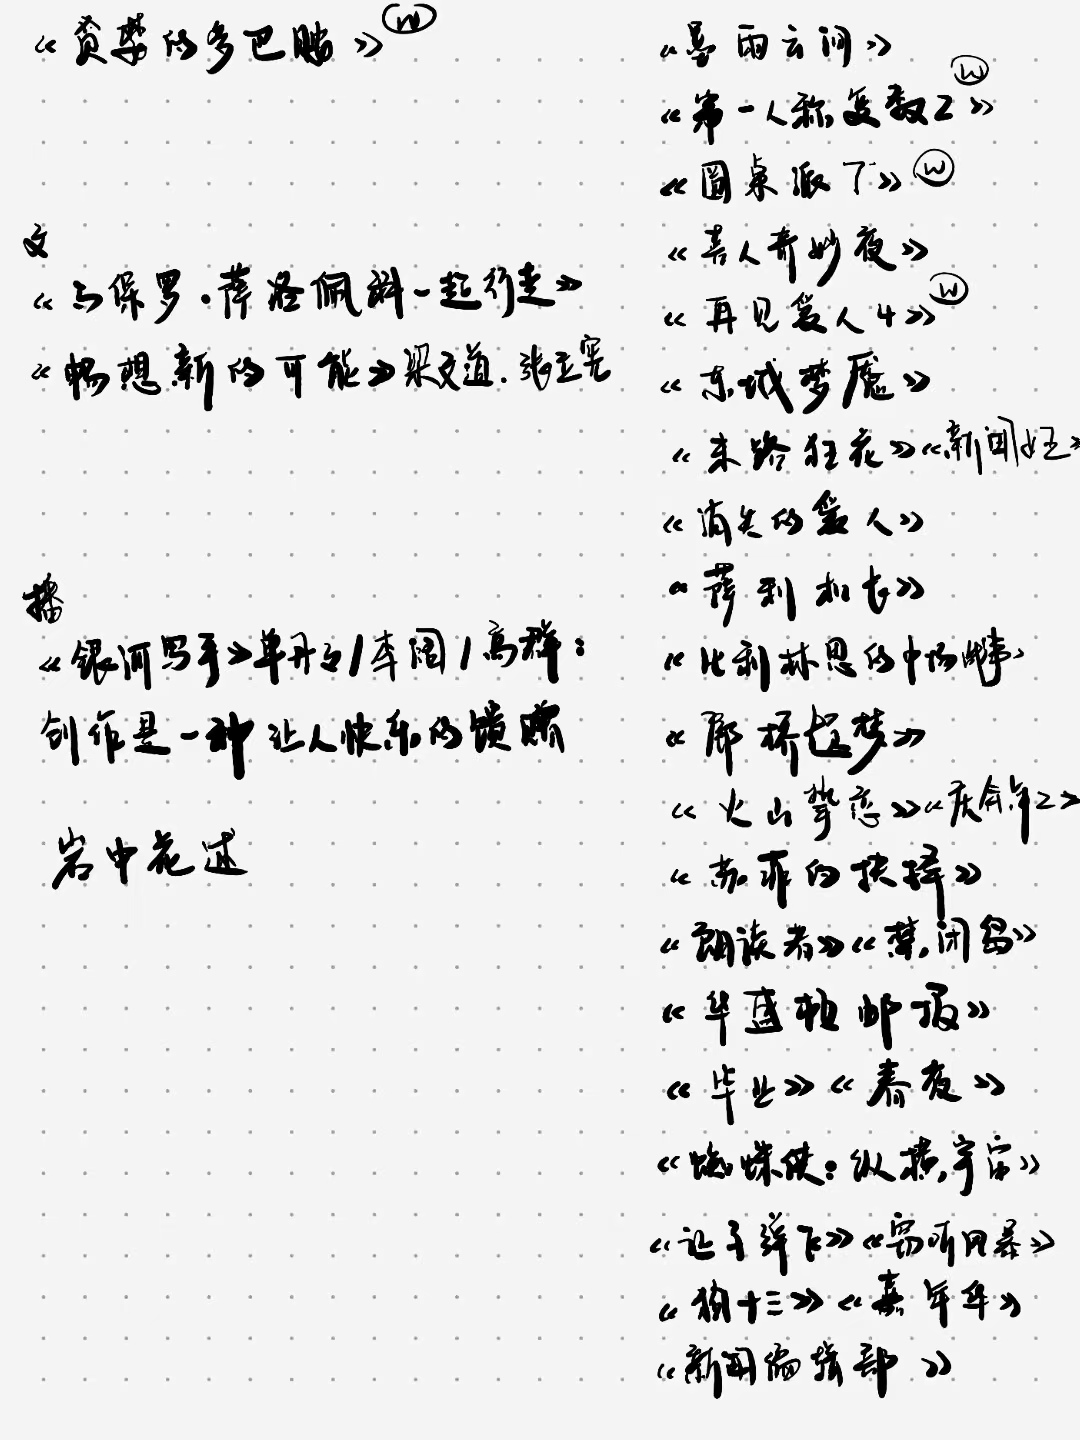 《贪婪的多巴胺》 W
文
《与保罗·萨洛佩科一起行走》
《畅想新的可能》梁文道.张亚宪
播
《银河写手》单丹丹/李阔/高群:
创作是一种让人快乐的馈赠
岩中花述
《墨雨云间》
《第一人称复数2》 W
《圆桌派7》 W
《喜人奇妙夜》
《再见爱人4》 W
《东城梦魇》
《末路狂花》《新闻女王》
《消失的爱人》
《萨利机长》
《比利林恩的中场战事》
《廊桥遗梦》
《火山挚恋》《庆余年2》
《苏菲的抉择》
《朗读者》《禁闭岛》
《华盛顿邮报》
《毕业》《春夜》
《蜘蛛侠:纵横宇宙》
《让子弹飞》《窃听风暴》
《狗十三》《嘉年华》
《新闻编辑部》